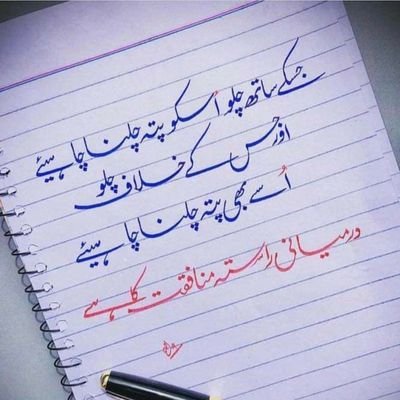 جسکے ساتھ چلو اُسکو پتہ چلنا چاہیئے
اور جس کے خلاف چلو
اُسے بھی پتہ چلنا چاہیئے
درمیانی راستہ منافقت کا ہے